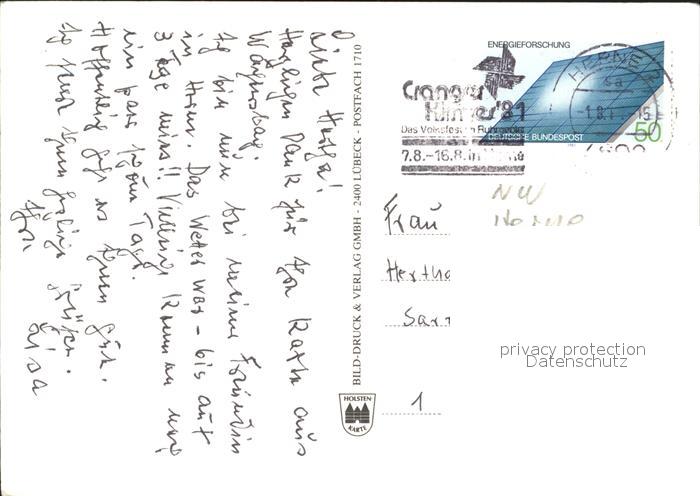 Liebe Hertha!
Herzlichen Dank für Ihre Karte aus
Ich bin nun bei meiner Freundin
in Herne. Das Wetter war - bis auf
3 Tage mies!! Vielleicht kommen noch
ein paar schöne Tage.
Hoffentlich geht es Ihnen gut.
Ihre Lisa
BILD-DRUCK & VERLAG GMBH - 2400 LÜBECK - POSTFACH 1710
HOLSTEN-
KARTE
ENERGIEFORSCHUNG
DEUTSCHE BUNDESPOST
50
HERNE
Cranger
Kirmes '81
Das Volksfest im Ruhrgebiet
7.8.-16.8. in Herne
NW
Herne
Frau
Hertha
1
privacy protection
Datenschutz